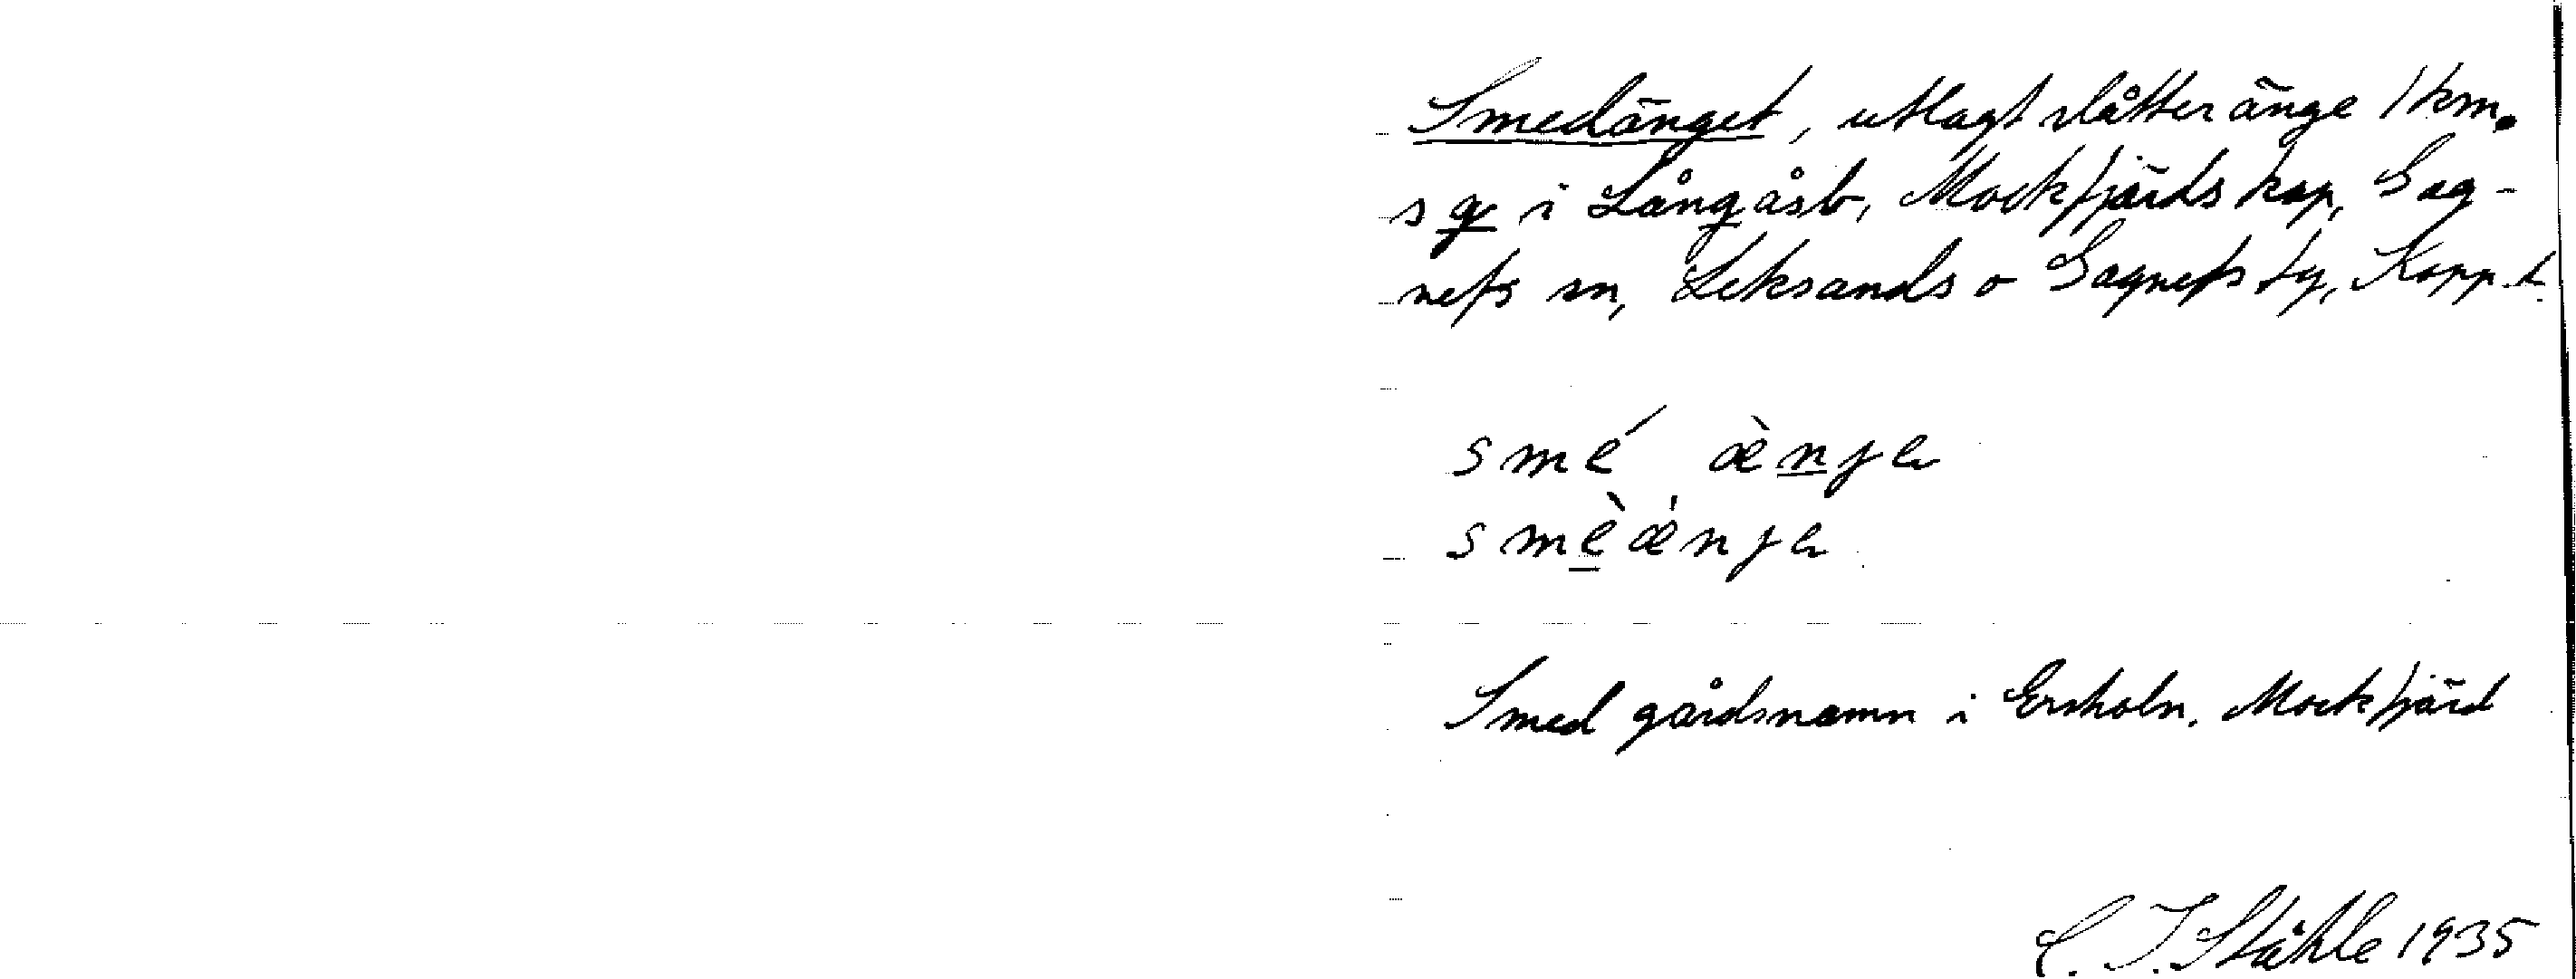 Smedänget, utlagt slåtteränge 1 km.
s gr i Långåsb, Mockfjärds kap, Gag-
nefs sn, Leksands o Gagnefs tg, Kopp. l.
smé ænje
smèænje
Smed gårdsnamn i Ersholn. Mockfjärd
C. I. Ståhle 1935